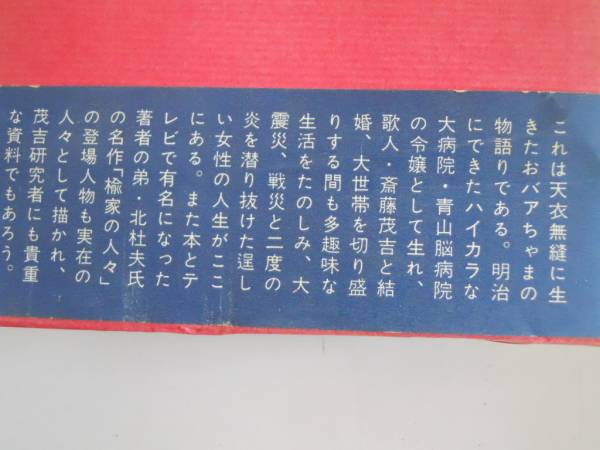 これは天衣無縫に生
きたおバアちゃまの
物語りである。明治
にできたハイカラな
大病院・青山脳病院
の令嬢として生れ、
歌人・斎藤茂吉と結
婚、大世帯を切り盛
りする間も多趣味な
生活をたのしみ、大
震災、戦災と二度の
炎を潜り抜けた逞し
い女性の人生がここ
にある。また本とテ
レビで有名になった
著者の弟・北杜夫氏
の名作「楡家の人々」
の登場人物も実在の
人々として描かれ、
茂吉研究者にも貴重
な資料でもあろう。